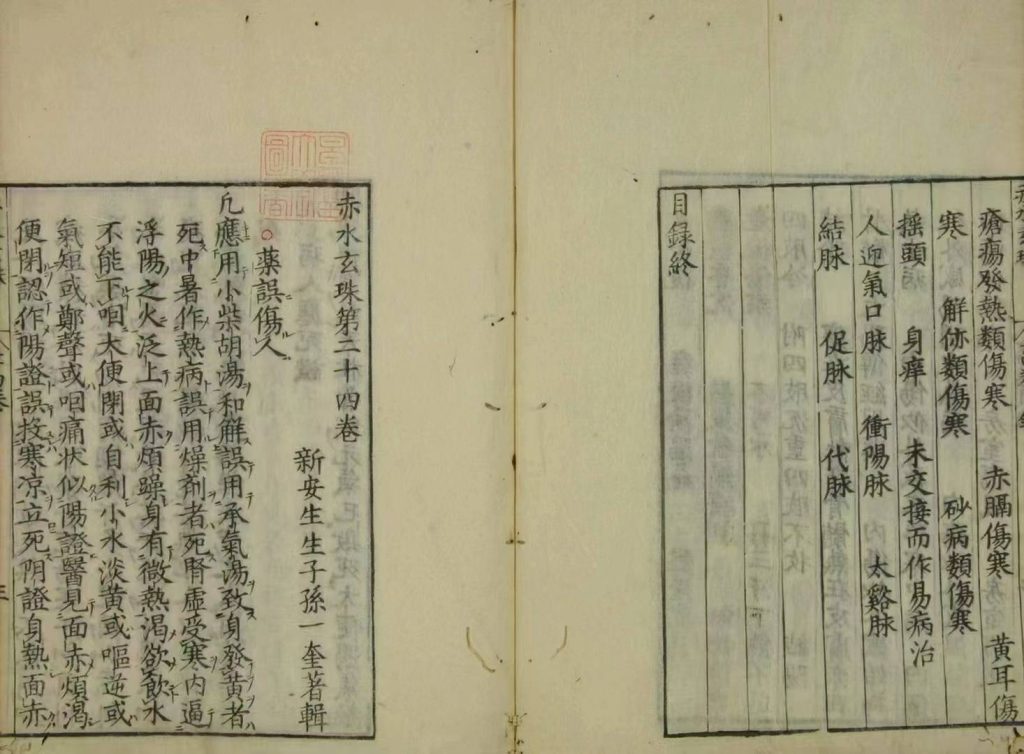 瘡瘍發熱類傷寒 赤膈傷寒 黃耳傷
寒 解㑊類傷寒 砂病類傷寒
揺頭 身痒 未交接而作易病治
人迎氣口脉 衝陽脉 太谿脉
結脉 促脉 代脉
目録終
赤水玄珠第二十四卷
新安生生子孫一奎著輯
藥誤傷人
凢應用小柴胡湯和解誤用承氣湯致身發黃者
死中暑作熱病誤用燥劑者死腎虛受寒内逼
浮陽之火泛上面赤煩躁身有微熱渴欲飲水
不能下咽大便閉或自利小水淡黃或嘔逆或
氣短或鄭聲或咽痛状似陽證醫見面赤煩渴
便閉認作陽證誤投寒凉立死阴證身熱面赤